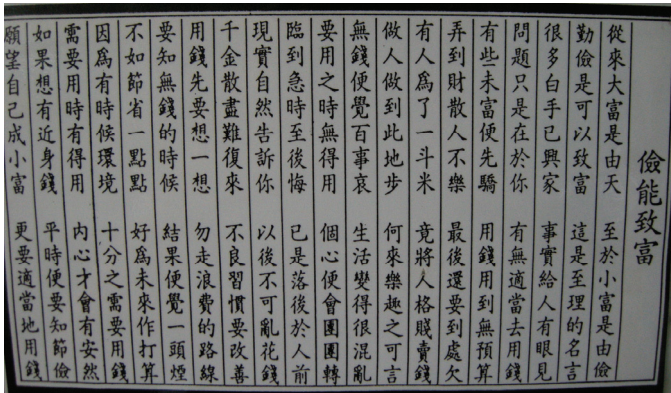 儉能致富
從來大富是由天 至於小富是由儉
勤儉是可以致富 這是至理的名言
很多白手已興家 事實給人有眼見
問題只是在於你 有無適當去用錢
有些未富便先驕 用錢用到無預算
弄到財散人不樂 最後還要到處欠
有人爲了一斗米 竟將人格賤賣錢
做人做到此地步 何來樂趣之可言
無錢便覺百事哀 生活變得很混亂
要用之時無得用 個心便會團團轉
臨到急時至後悔 已是落後於人前
現實自然告訴你 以後不可亂花錢
千金散盡難復來 不良習慣要改善
用錢先要想一想 勿走浪費的路線
要知無錢的時候 結果便覺一頭煙
不如節省一點點 好爲未來作打算
因爲有時候環境 十分之需要用錢
需要用時有得用 內心才會有安然
如果想有近身錢 平時便要知節儉
願望自己成小富 更要適當地用錢